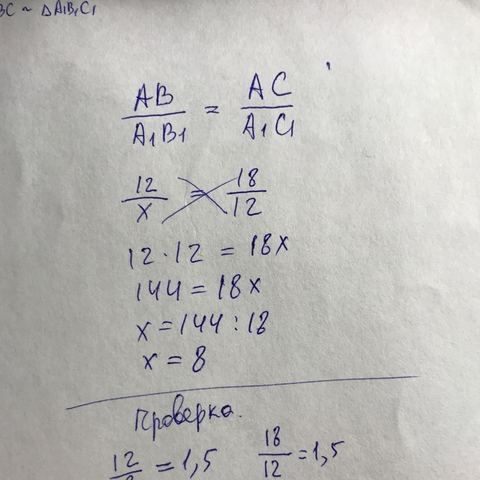 BC ~ ΔA₁B₁C₁
AB/A₁B₁ = AC/A₁C₁
12/x = 18/12
12 · 12 = 18x
144 = 18x
x = 144 : 18
x = 8
Проверка.
12/8 = 1,5 18/12 = 1,5